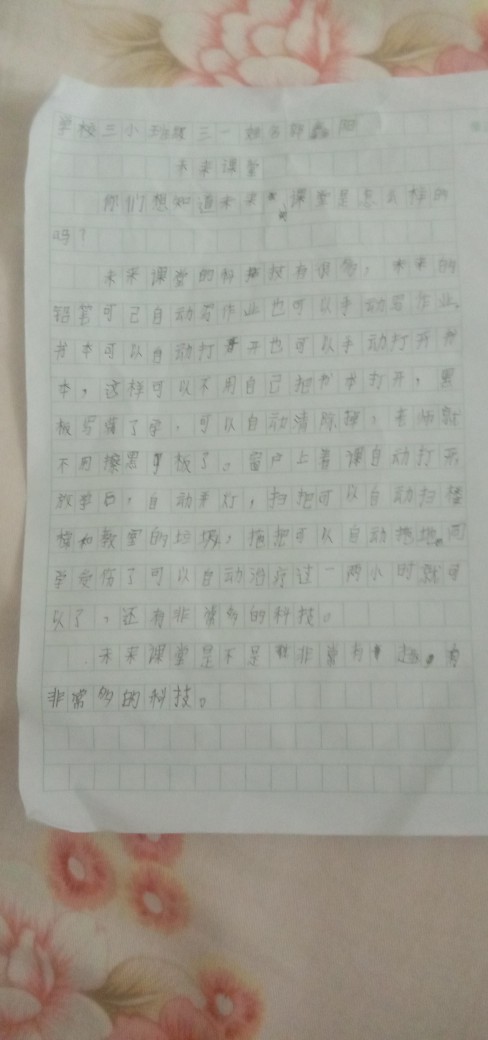 学校三小班级三一姓名 阳
未来课堂
你们想知道未来课堂是怎么样的
吗？
未来课堂的科技有很多，未来的
铅笔可己自动写作业也可以手动写作业，
书本可以自动打开也可以手动打开书
本，这样可以不用自己把书本打开，黑
板写满了字，可以自动清除掉，老师就
不用擦黑板了。窗户上着课自动打开
放学后，自动关灯，扫把可以自动扫楼
梯和教室的垃圾，拖把可以自动拖地。同
学受伤了可以自动治疗过一两小时就可
以了，还有非常多的科技。
未来课堂是不是非常有趣。有
非常多的科技。